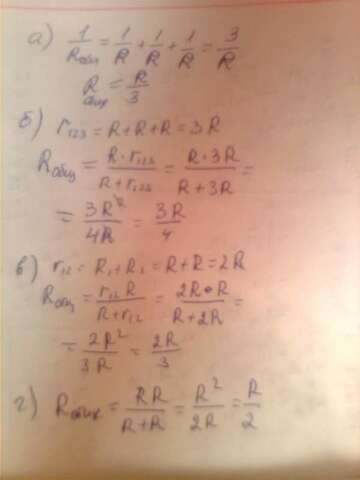 а) 1/Rобщ = 1/R + 1/R + 1/R = 3/R
Rобщ = R/3
б) r₁₂₃ = R + R + R = 3R
Rобщ = R·r₁₂₃/R+r₁₂₃ = R·3R/R+3R =
= 3R²/4R = 3R/4
в) r₁₂ = R₁ + R₂ = R + R = 2R
Rобщ = r₁₂R/R+r₁₂ = 2R·R/R+2R =
= 2R²/3R = 2R/3
г) Rобщ = RR/R+R = R²/2R = R/2